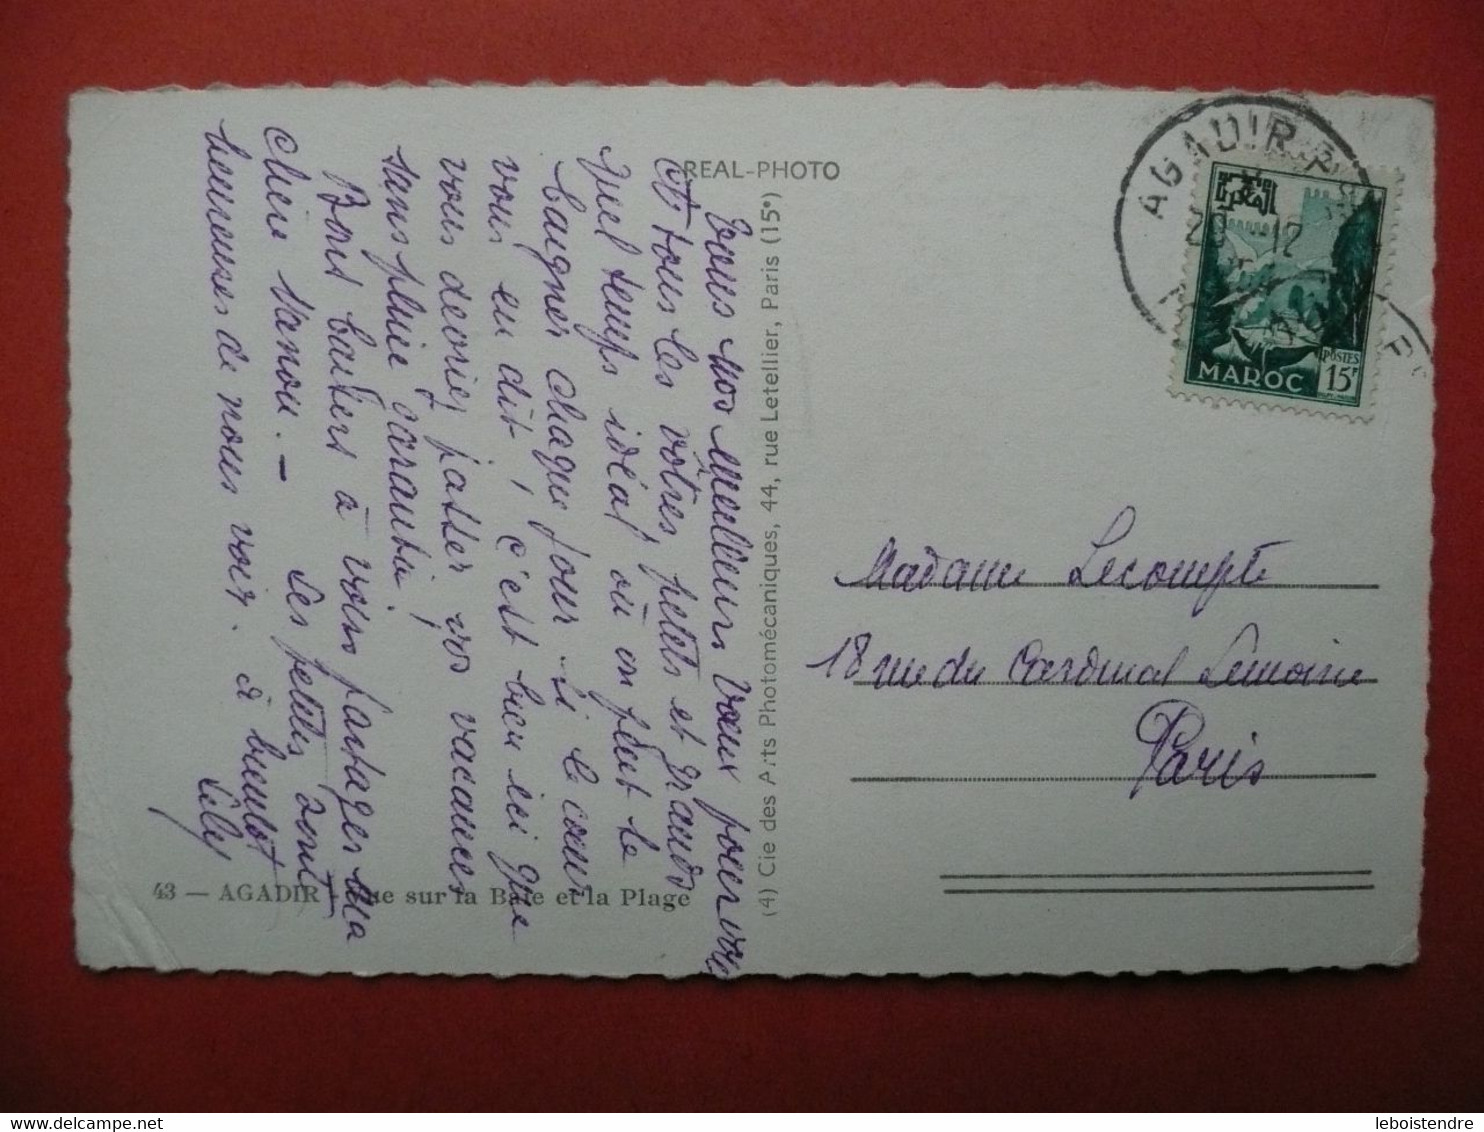 Tous nos meilleurs vœux pour vous
et tous les vôtres, petits et grands
quel temps idéal où on peut se
baigner chaque jour. Si le cœur
vous en dit, c'est bien ici que
vous devriez passer vos vacances
sans pluie garantie!
Bons baisers à vous partager ma
chère Nanou. - Les petites sont
heureuses de nous voir. à bientôt
Lily
REAL-PHOTO
43 — AGADIR sur la Baie et la Plage
(4) Cie des Arts Photomécaniques, 44, rue Letellier, Paris (15e)
AGADIR
12
المغرب
POSTES
MAROC 15F
Madame Lecompte
18 rue du Cardinal Lemoine
Paris
www.delcampe.net
leboistendre